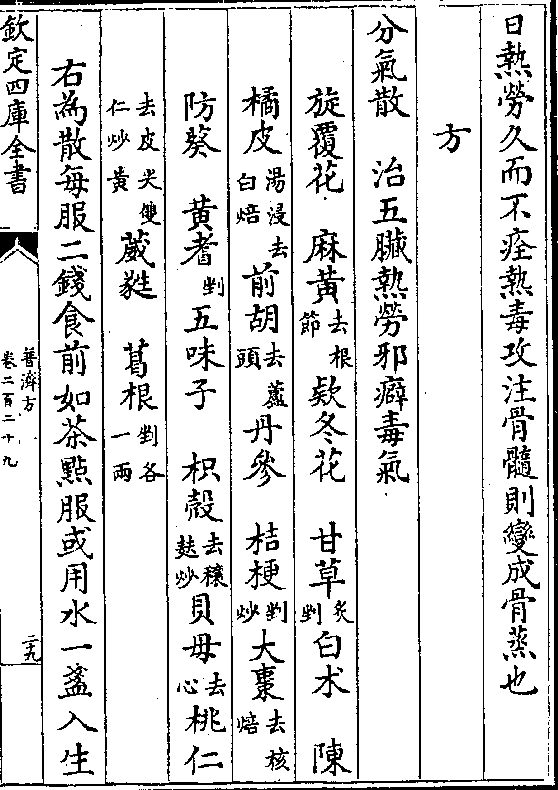 日熱勞久而不痊熱毒攻注骨髓則變成骨蒸也
方
分氣散 治五臟熱勞邪癖毒氣
旋覆花 麻黃去根節 欵冬花 甘草炙剉 白朮 陳
橘皮湯浸去白焙 前胡去蘆頭 丹參 桔梗剉炒 大棗去核焙
防葵 黃耆剉 五味子 枳殼去穰麩炒 貝母去心 桃仁
去皮尖雙仁炒黃 葳蕤 葛根剉各一兩
右為散每服二錢食前如茶點服或用水一盞入生
欽定四庫全書
普濟方
卷二百二十九
二十九